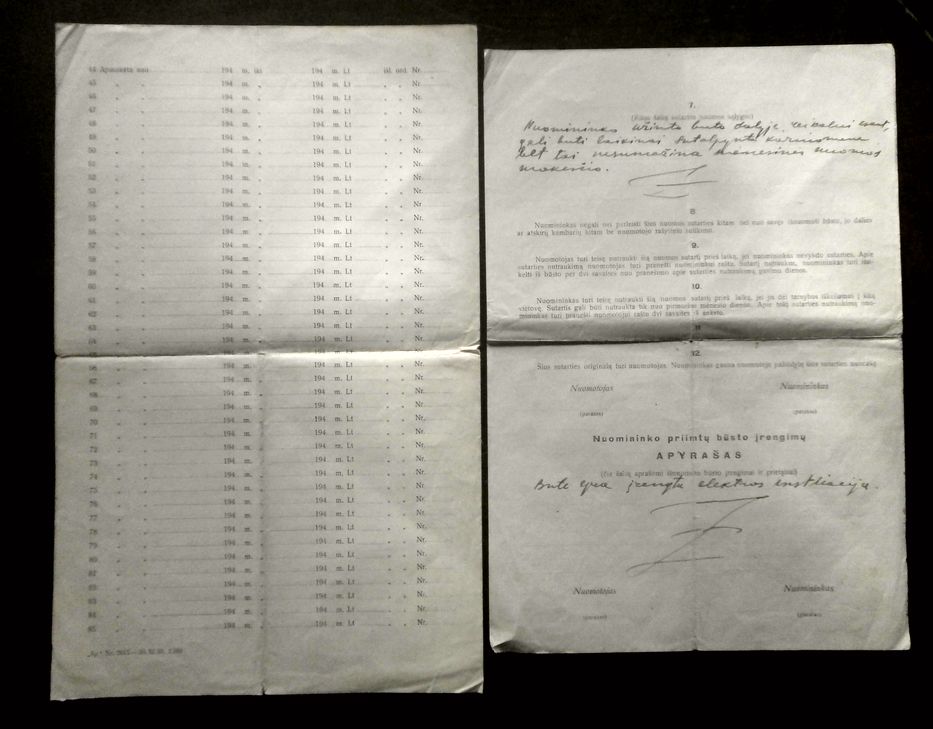 44 Apmokėta nuo 194 m. iki 194 m. Lt ikl. ord. Nr.
45 „ „ 194 m. „ 194 m. Lt „ „ Nr.
46 „ „ 194 m. „ 194 m. Lt „ „ Nr.
47 „ „ 194 m. „ 194 m. Lt „ „ Nr.
48 „ „ 194 m. „ 194 m. Lt „ „ Nr.
49 „ „ 194 m. „ 194 m. Lt „ „ Nr.
50 „ „ 194 m. „ 194 m. Lt „ „ Nr.
51 „ „ 194 m. „ 194 m. Lt „ „ Nr.
52 „ „ 194 m. „ 194 m. Lt „ „ Nr.
53 „ „ 194 m. „ 194 m. Lt „ „ Nr.
54 „ „ 194 m. „ 194 m. Lt „ „ Nr.
55 „ „ 194 m. „ 194 m. Lt „ „ Nr.
56 „ „ 194 m. „ 194 m. Lt „ „ Nr.
57 „ „ 194 m. „ 194 m. Lt „ „ Nr.
58 „ „ 194 m. „ 194 m. Lt „ „ Nr.
59 „ „ 194 m. „ 194 m. Lt „ „ Nr.
60 „ „ 194 m. „ 194 m. Lt „ „ Nr.
61 „ „ 194 m. „ 194 m. Lt „ „ Nr.
62 „ „ 194 m. „ 194 m. Lt „ „ Nr.
63 „ „ 194 m. „ 194 m. Lt „ „ Nr.
64 „ „ 194 m. „ 194 m. Lt „ „ Nr.
65 „ „ 194 m. „ 194 m. Lt „ „ Nr.
66 „ „ 194 m. „ 194 m. Lt „ „ Nr.
67 „ „ 194 m. „ 194 m. Lt „ „ Nr.
68 „ „ 194 m. „ 194 m. Lt „ „ Nr.
69 „ „ 194 m. „ 194 m. Lt „ „ Nr.
70 „ „ 194 m. „ 194 m. Lt „ „ Nr.
71 „ „ 194 m. „ 194 m. Lt „ „ Nr.
72 „ „ 194 m. „ 194 m. Lt „ „ Nr.
73 „ „ 194 m. „ 194 m. Lt „ „ Nr.
74 „ „ 194 m. „ 194 m. Lt „ „ Nr.
75 „ „ 194 m. „ 194 m. Lt „ „ Nr.
76 „ „ 194 m. „ 194 m. Lt „ „ Nr.
77 „ „ 194 m. „ 194 m. Lt „ „ Nr.
78 „ „ 194 m. „ 194 m. Lt „ „ Nr.
79 „ „ 194 m. „ 194 m. Lt „ „ Nr.
80 „ „ 194 m. „ 194 m. Lt „ „ Nr.
81 „ „ 194 m. „ 194 m. Lt „ „ Nr.
82 „ „ 194 m. „ 194 m. Lt „ „ Nr.
83 „ „ 194 m. „ 194 m. Lt „ „ Nr.
84 „ „ 194 m. „ 194 m. Lt „ „ Nr.
85 „ „ 194 m. „ 194 m. Lt „ „ Nr.
7.
(Kitos šalių sutartos nuomos sąlygos)
Nuomininkas užimto buto dalyje, reikalui esant,
gali būti laikinai
bet tai nesumažina mėnesinės nuomos
mokesčio.
8.
Nuomininkas negali nei perleisti šios nuomos sutarties kitam nei nuo savęs išnuomoti būsto, jo dalies
ar atskirų kambarių kitam be nuomotojo raštiško sutikimo.
9.
Nuomotojas turi teisę nutraukti šią nuomos sutartį prieš laiką, jei nuomininkas nevykdo sutarties. Apie
sutarties nutraukimą nuomotojas turi pranešti nuomininkui raštu. Sutartį nutraukus, nuomininkas turi išsi-
kelti iš būsto per dvi savaites nuo pranešimo apie sutarties nutraukimą gavimo dienos.
10.
Nuomininkas turi teisę nutraukti šią nuomos sutartį prieš laiką, jei jis dėl tarnybos iškeliamas į kitą
vietovę. Sutartis gali būti nutraukta tik nuo pirmosios mėnesio dienos. Apie tokį sutarties nutraukimą nuo-
mininkas turi pranešti nuomotojui raštu dvi savaites iš anksto.
11
12.
Šios sutarties originalą turi nuomotojas. Nuomininkas gauna nuomotojo paliudytą šios sutarties nuorašą
Nuomotojas Nuomininkas
(parašas) (parašas)
Nuomininko priimtų būsto įrengimų
APYRAŠAS
Bute yra įrengta elektros instliacija.
Nuomotojas Nuomininkas
(parašas) (parašas)